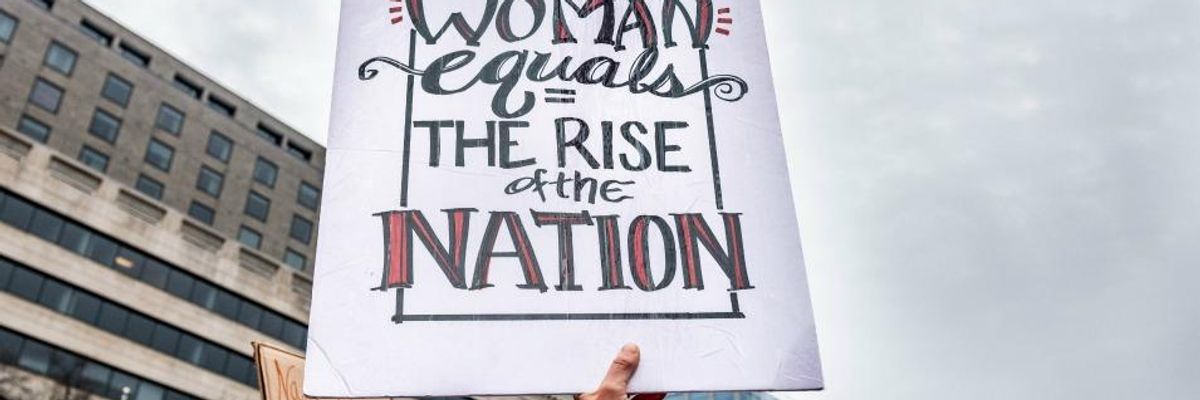 WOMAN
equals
=
THE RISE
of the
NATION